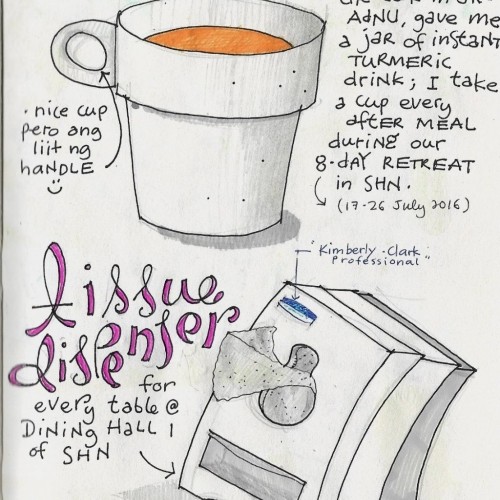 AdNU, gave me
a jar of instant
TURMERIC
drink; I take
a cup every
after MEAL
during our
8-day RETREAT
in SHN.
(17-26 July 2016)
· nice cup
pero ang
liit ng
haNDLE
"Kimberly-Clark
Professional"
tissue
dispenser
for
every table @
DiNiNG HaLL 1
of SHN